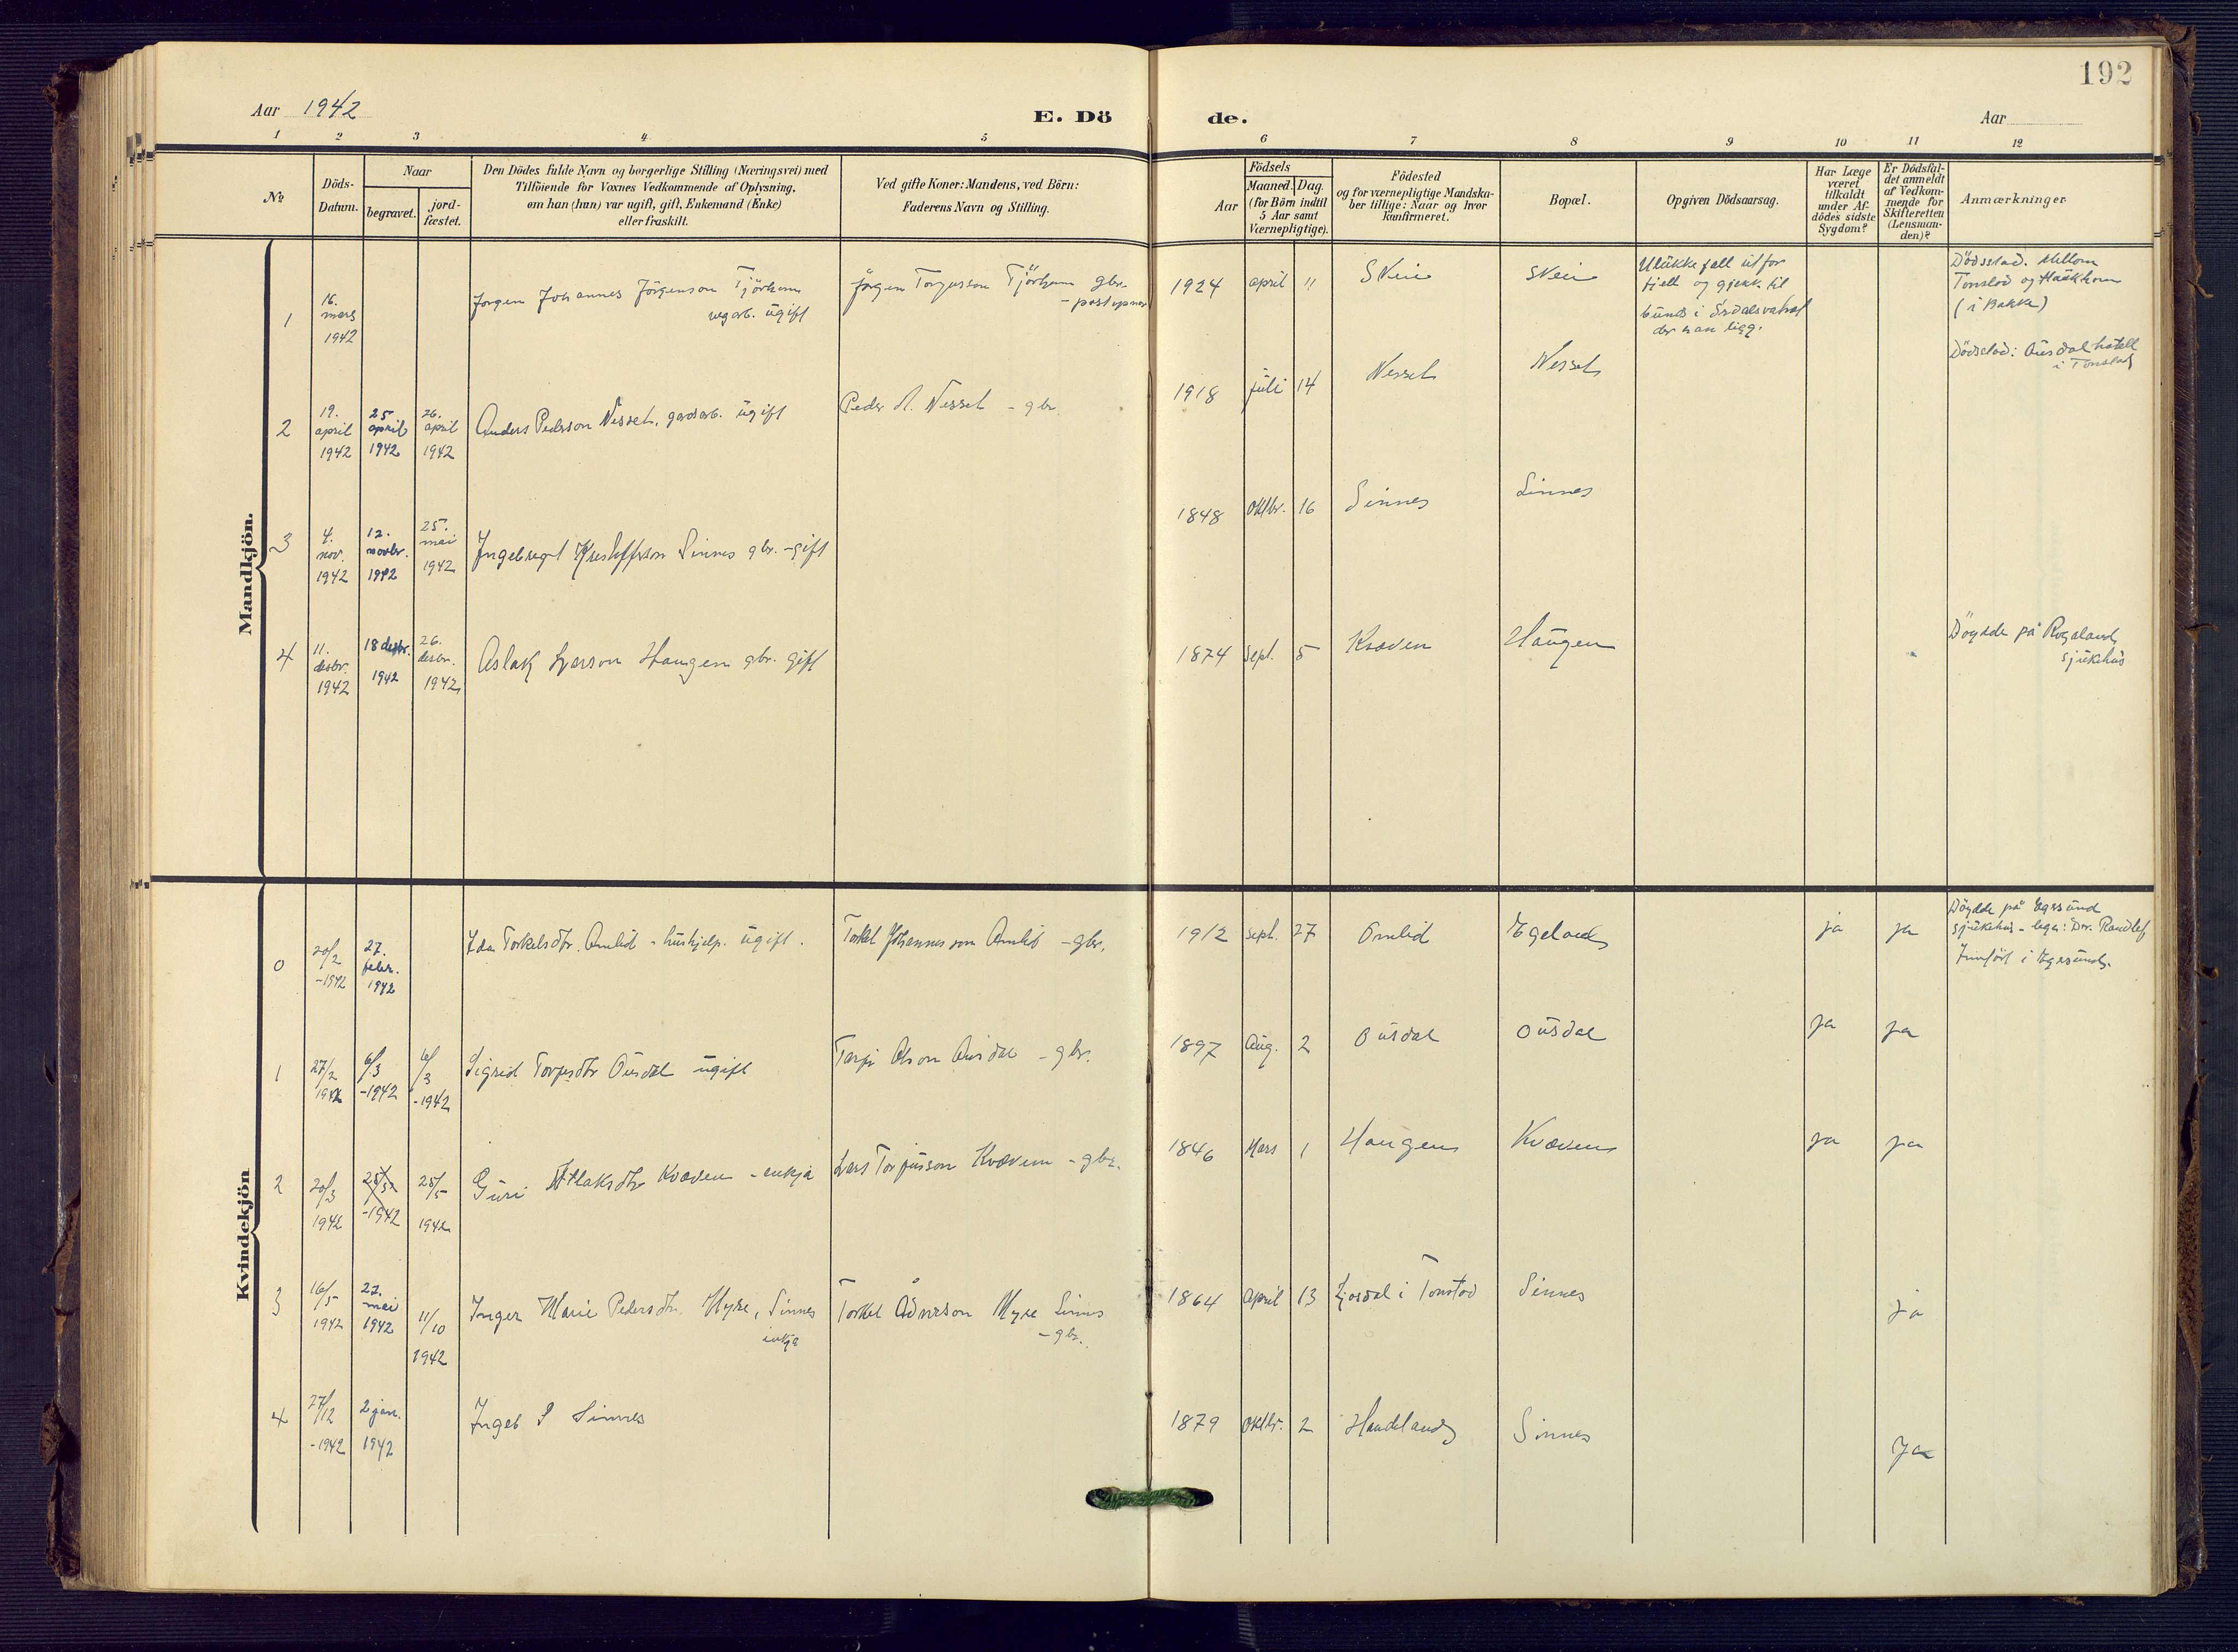 192
Aar 1942
E. Dö
de.
Aar
1 2 3 4 5 6 7 8 9 10 11 12
№
Döds-
Datum.
Naar
begravet.
jord-
fæstet.
Den Dödes fulde Navn og borgerlige Stilling (Næringsvei) med
Tilföiende for Voxnes Vedkommende af Oplysning,
om han (hun) var ugift, gift, Enkemand (Enke)
eller fraskilt.
Ved gifte Koner: Mandens, ved Börn:
Faderens Navn og Stilling.
Födsels
Aar
Maaned.
Dag.
(for Börn indtil
5 Aar samt
Værnepligtige).
Födested
og for værnepligtige Mandska-
ber tillige: Naar og hvor
konfirmeret.
Bopæl.
Opgiven Dödsaarsag.
Har Læge
været
tilkaldt
under Af-
dödes sidste
Sygdom?
Er Dödsfal-
det anmeldt
af Vedkom-
mende for
Skifteretten
(Lensman-
den)?
Anmærkninger
Mandkjön.
1
16.
mars
1942
Jørgen Johannes Jörgenson Tjörhom
vegarb. ugift
Jørgen Torgersson Tjörhom gbr.
- postopnar
1924 april 11
Skeie
Skeie
Ulukke fall utfor
fjell og gjekk til
bunds i Sirdalsvatnet
der han ligg.
Dödsstad. Mellom
Tonstad og Haukhom
(i Bakke)
2
19.
april
1942
25
april
1942
26.
april
1942
Anders Pedersson Nesset, gardsarb. ugift
Peder A. Nesset - gbr.
1918 juli 14
Nesset
Nesset
Dödsstad: Ousdal hotell
i Tonstad
3
4.
nov.
1942
12.
novbr.
1942
25.
mai
1942
Ingebregt Kristoffersson Sinnes gbr. - gift
1848 oktbr. 16
Sinnes
Sinnes
4
11.
desbr.
1942
18 desbr.
1942
26.
desbr.
1942
Aslak Larsson Haugen gbr. gift
1874 sept. 5
Kvæven
Haugen
Döydde på Rogaland
sjukehus
Kvindekjön
0
20/2
-1942
27.
febr.
1942
Ida Torkelsdtr. Omlid - hushjelp. ugift.
Torkel Johannesson Omlid - gbr.
1912 sept. 27
Omlid
Egeland
ja
ja
Döydde på Egersund
sjukehus - lege: Dr.
Innfört i Egersund.
1
27/2
1942
6/3
-1942
6/3
-1942
Sigrid Torjusdtr Ousdal ugift
Torju Olson Ousdal - gbr.
1897 Aug. 2
Ousdal
Ousdal
ja
ja
2
20/3
1942
-1942
25/5
1942
Guri Atlaksdtr Kvæven - enkja
Lars Torjusson Kvæven - gbr.
1846 Mars 1
Haugen
Kvæven
ja
ja
3
16/5
1942
27.
mai
1942
11/10
1942
Inger Marie Pedersdtr. Myre, Sinnes
enkja
Torkel Ådnesson Myre Sinnes
- gbr.
1864 april 13
Ljosdal i Tonstad
Sinnes
ja
4
27/12
-1942
2 jan.
1942
Ingeb S Sinnes
1879 oktbr. 2
Haudeland
Sinnes
Ja